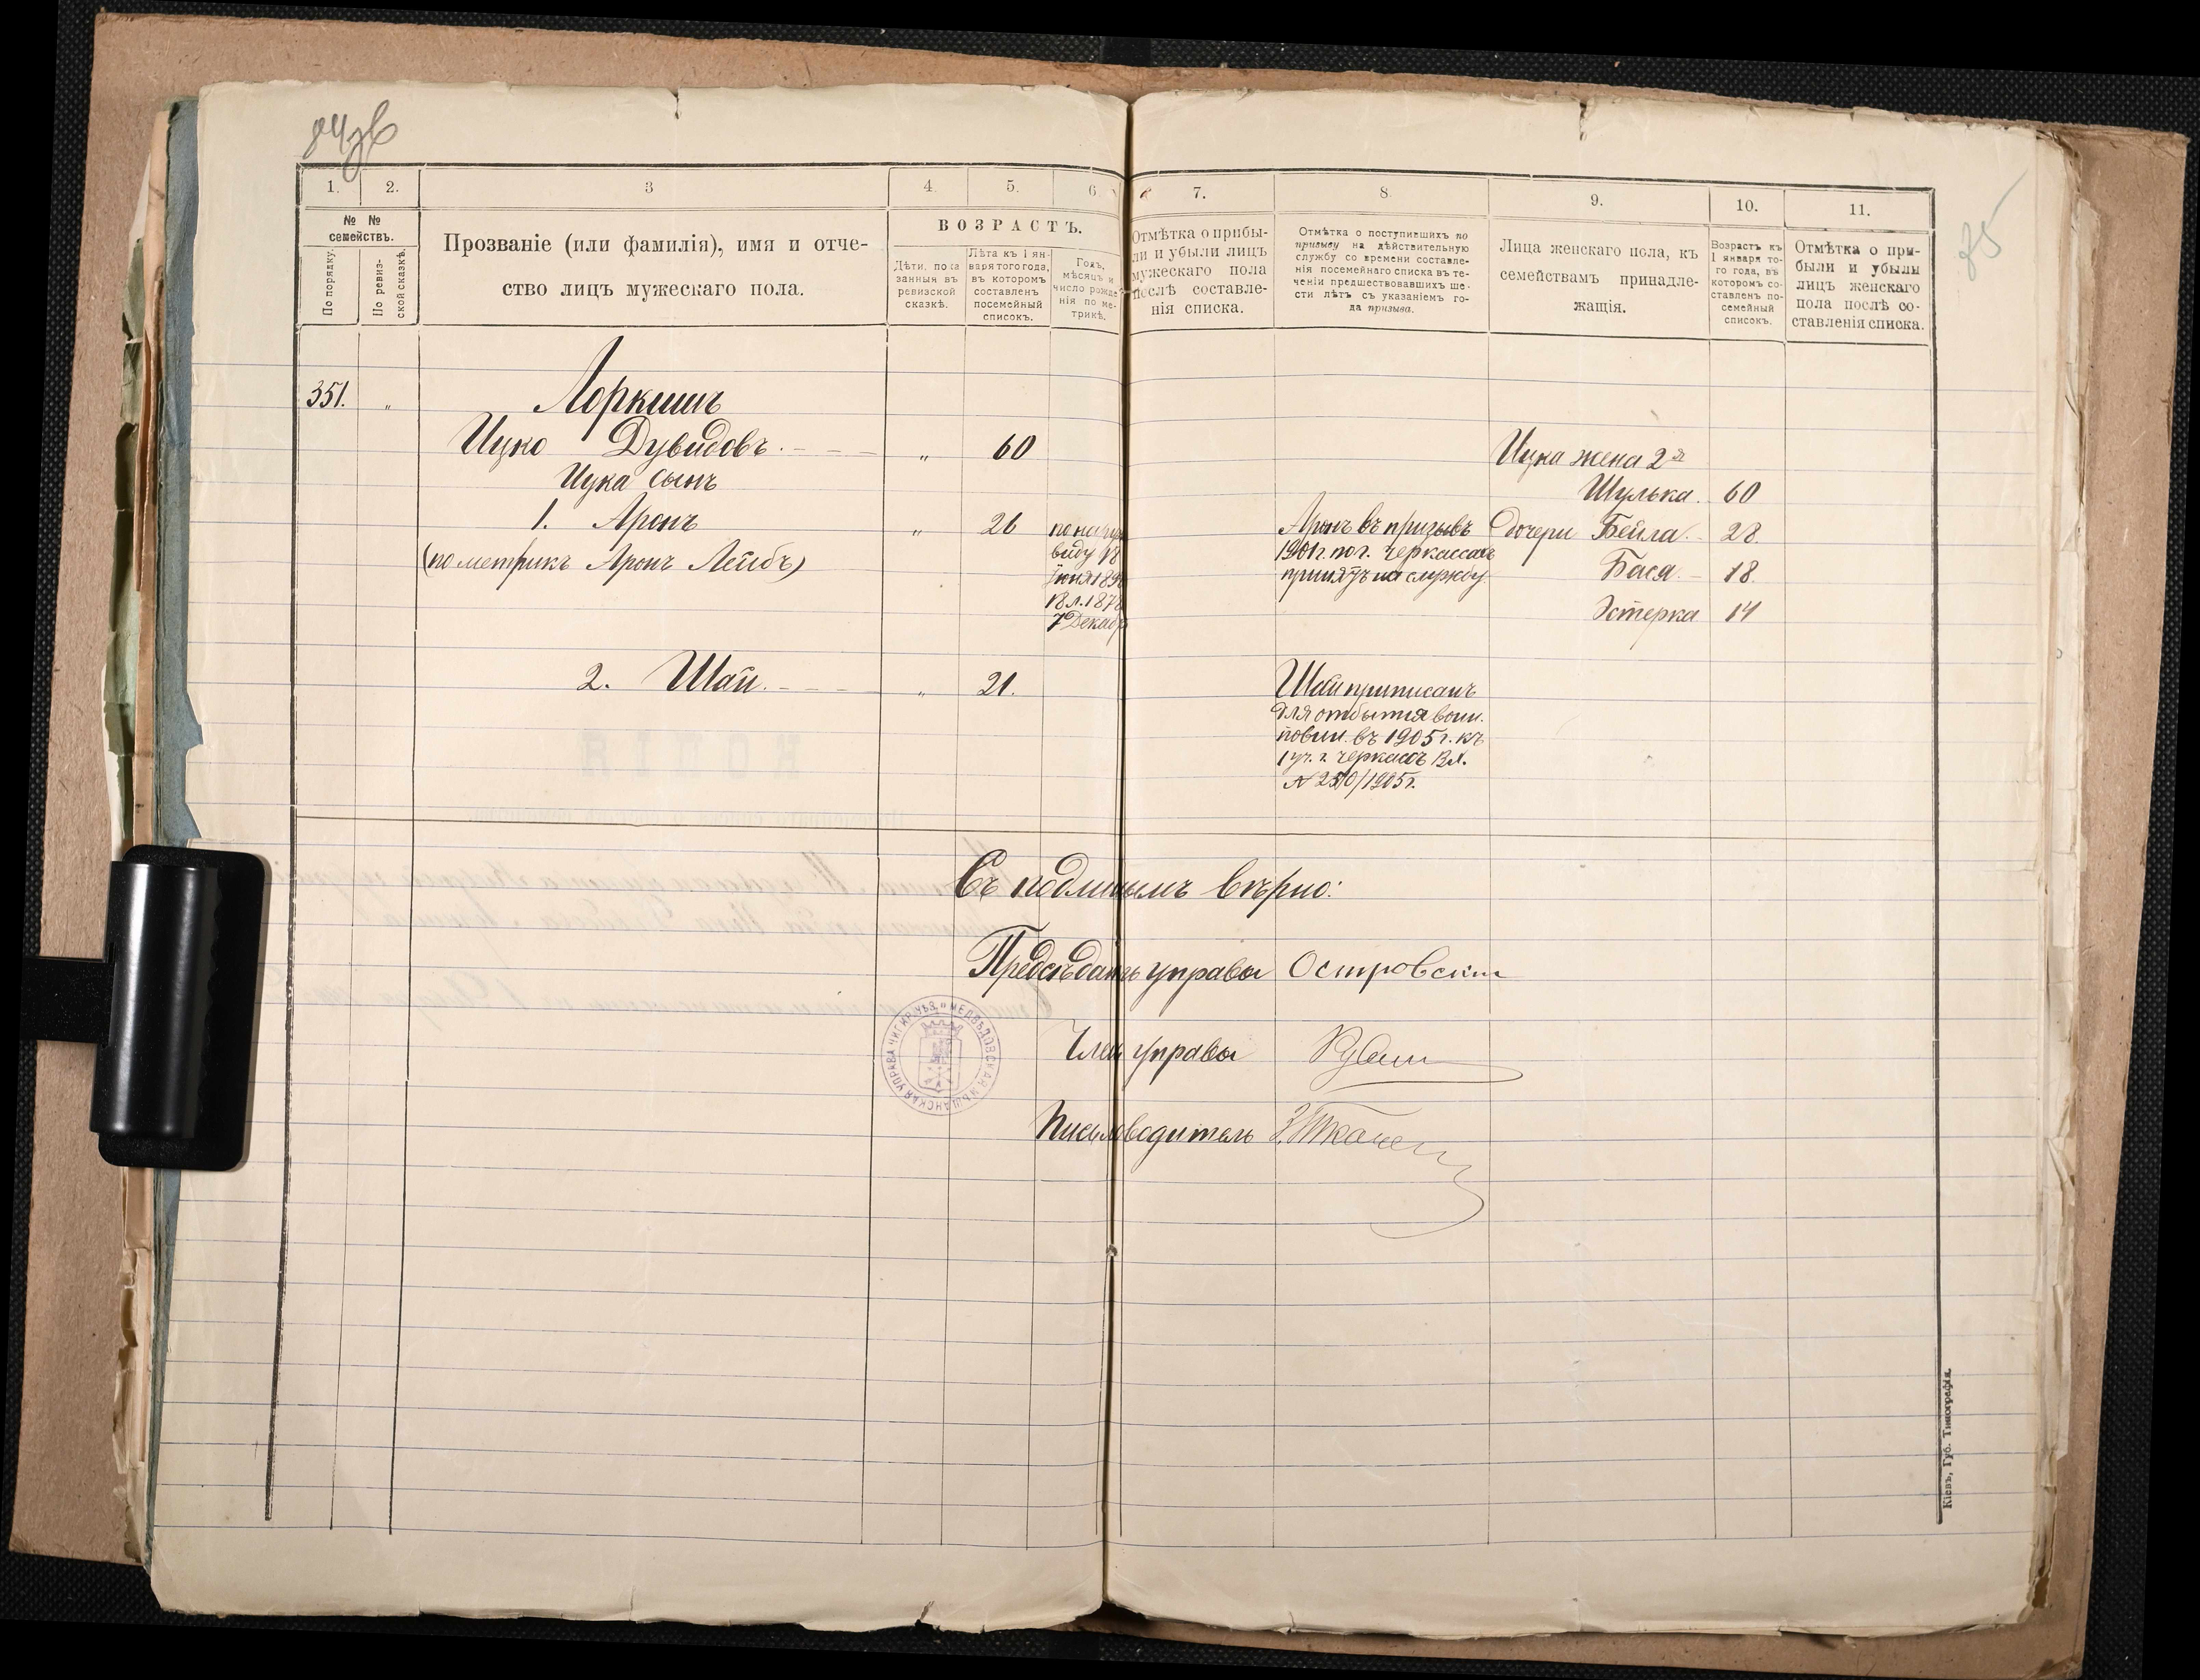 84 зв
85
1. 2. 3 4. 5. 6 7. 8. 9. 10. 11.
№ № семействъ.
По порядку.
По ревизской сказкѣ.
Прозваніе (или фамилія), имя и отчество лицъ мужескаго пола.
ВОЗРАСТЪ.
Дѣти, показанныя въ ревизской сказкѣ.
Лѣта къ 1 января того года, въ которомъ составленъ посемейный списокъ.
Годъ, мѣсяцъ и число рожденія по метрикѣ.
Отмѣтка о прибыли и убыли лицъ мужескаго пола послѣ составленія списка.
Отмѣтка о поступившихъ по призыву на дѣйствительную службу со времени составленія посемейнаго списка въ теченіи предшествовавшихъ шести лѣтъ съ указаніемъ года призыва.
Лица женскаго пола, къ семействамъ принадлежащія.
Возрастъ къ 1 января того года, въ которомъ составленъ посемейный списокъ.
Отмѣтка о прибыли и убыли лицъ женскаго пола послѣ составленія списка.
351. "
Лоркишъ
Ицко Дувидовъ " 60
Ицка жена 2я
Ицка сынъ
Шулька. 60
1. Аронъ " 26
(по метрикѣ Аронъ Лейбъ)
по наруж
виду 18
Іюня 189
18 л. 1878
7 Декабр
Аронъ въ призывъ
1901 г. по г. Черкассахъ
принятъ на службу.
дочери Бейла. 28
Бася 18.
Эстерка 14
2. Шая. " 21.
Шая приписанъ
для отбытия воин.
повин. въ 1905 г. къ
1 уч. г. Черкассъ
№ 2510/1905 г.
Съ подлинымъ вѣрно:
Предсѣдатъ управы Островскій
Член управы Рубин
Писмоводитель
МЕДВѢДОВСКАЯ МѢЩАНСКАЯ УПРАВА ЧИГИР. УѢЗ.
Кіевъ, Губ. Типографія.